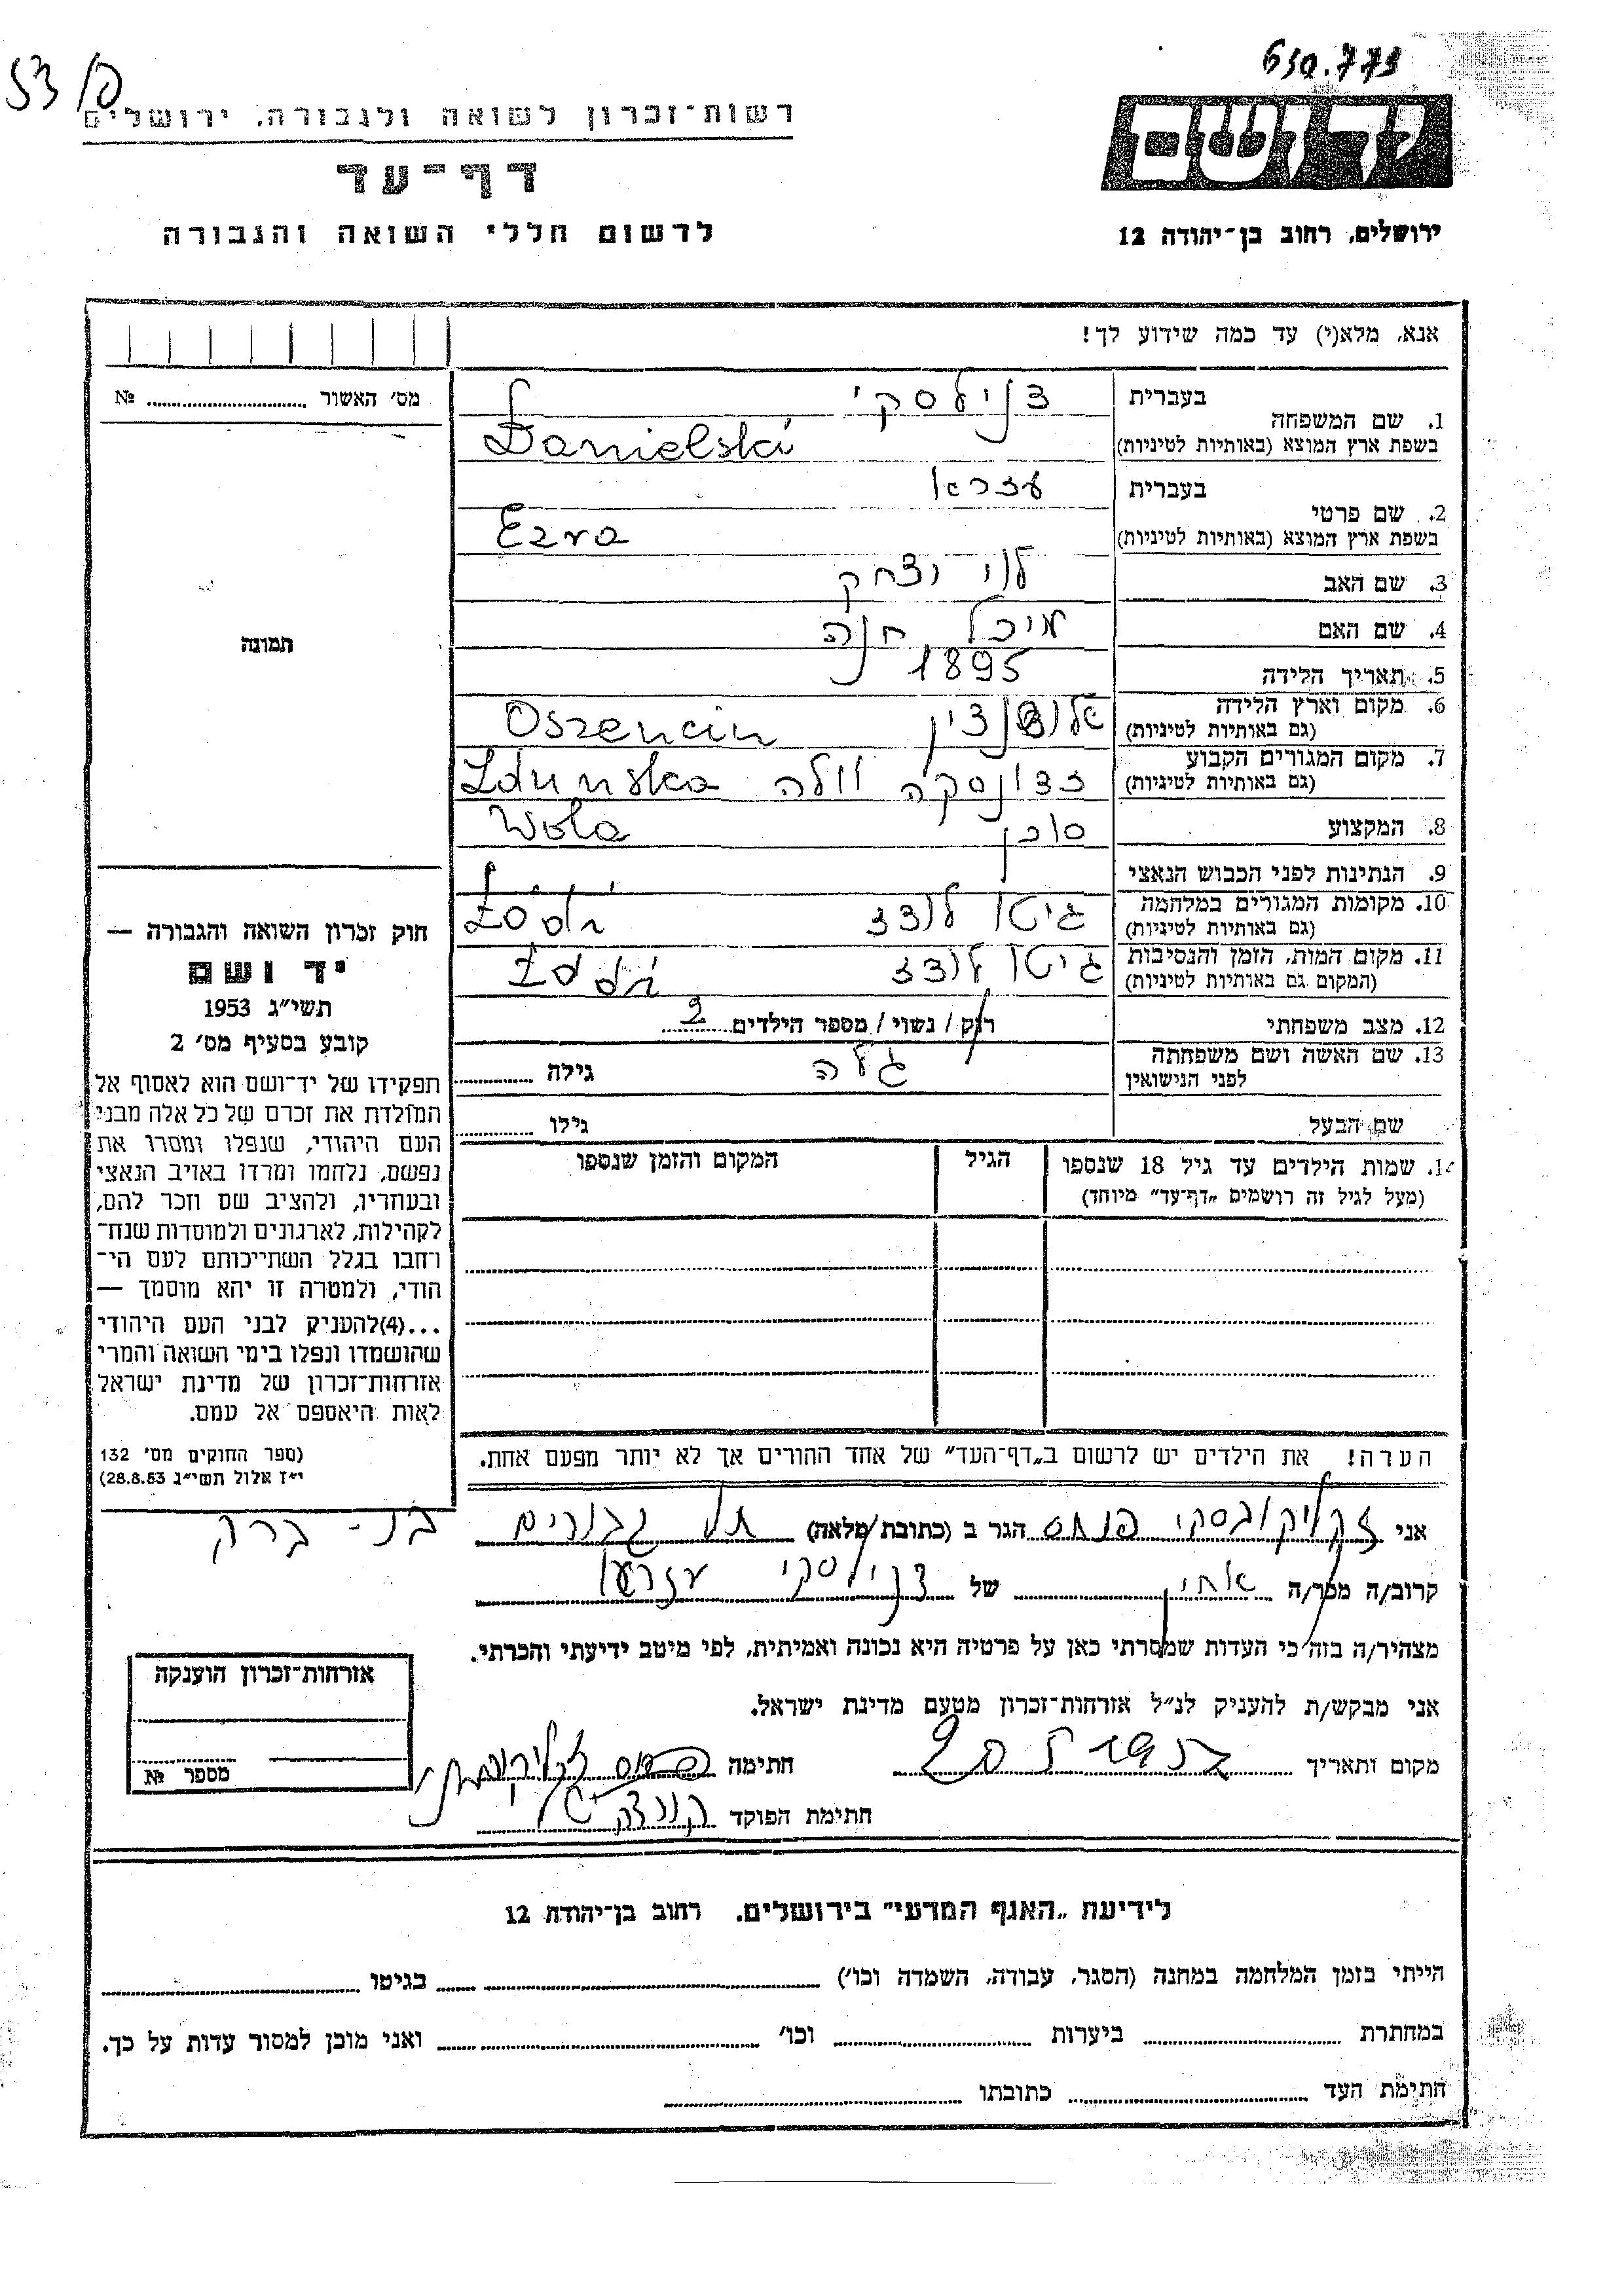 650.779
53/פ
רשות־זכרון לשואה ולגבורה, ירושלים
דף־עד
לרשום חללי השואה והגבורה
יד ושם
ירושלים, רחוב בן־יהודה 12
אנא, מלא(י) עד כמה שידוע לך!
מס׳ האשור ........ №
תמונה
1. שם המשפחה
בעברית דנילסקי
בשפת ארץ המוצא (באותיות לטיניות) Danielski
2. שם פרטי
בעברית עזרא
בשפת ארץ המוצא (באותיות לטיניות) Ezra
3. שם האב לוי יצחק
4. שם האם מיכל חנה
5. תאריך הלידה 1895
6. מקום וארץ הלידה
(גם באותיות לטיניות) Oszencin
7. מקום המגורים הקבוע
(גם באותיות לטיניות) זדונסקה וולה Zdunska
Wola
8. המקצוע סוכן
9. הנתינות לפני הכבוש הנאצי
10. מקומות המגורים במלחמה
(גם באותיות לטיניות) גיטו לודז Łódź
11. מקום המות, הזמן והנסיבות
(המקום גם באותיות לטיניות) גיטו לודז Łódź
12. מצב משפחתי רוק / נשוי / מספר הילדים 2
13. שם האשה ושם משפחתה
לפני הנישואין גלה גילה ........
שם הבעל גילו ........
14. שמות הילדים עד גיל 18 שנספו
(מעל לגיל זה רושמים „דף־עד” מיוחד)
הגיל
המקום והזמן שנספו
חוק זכרון השואה והגבורה —
יד ושם
תשי״ג 1953
קובע בסעיף מס׳ 2
תפקידו של יד־ושם הוא לאסוף אל
המולדת את זכרם של כל אלה מבני
העם היהודי, שנפלו ומסרו את
נפשם, נלחמו ומרדו באויב הנאצי
ובעוזריו, ולהציב שם וזכר להם,
לקהילות, לארגונים ולמוסדות שנח־
רבו בגלל השתייכותם לעם הי־
הודי, ולמטרה זו יהא מוסמך —
...(4)להעניק לבני העם היהודי
שהושמדו ונפלו בימי השואה והמרי
אזרחות־זכרון של מדינת ישראל
לאות היאספם אל עמם.
(ספר החוקים מס׳ 132
י״ז אלול תשי״ג 28.8.53)
הערה! את הילדים יש לרשום ב„דף־העד” של אחד ההורים אך לא יותר מפעם אחת.
אני זקליקובסקי פנחס הגר ב (כתובת מלאה) תל גבורים בני-ברק
קרוב/ה מכר/ה אחין של דנילסקי עזרא
מצהיר/ה בזה כי העדות שמסרתי כאן על פרטיה היא נכונה ואמיתית, לפי מיטב ידיעתי והכרתי.
אני מבקש/ת להעניק לנ״ל אזרחות־זכרון מטעם מדינת ישראל.
מקום ותאריך חתימה
חתימת הפוקד
אזרחות־זכרון הוענקה
מספר №
לידיעת „האגף המדעי” בירושלים, רחוב בן־יהודה 12
הייתי בזמן המלחמה במחנה (הסגר, עבודה, השמדה וכו׳) ........ בגיטו ........
במחתרת ........ ביערות ........ וכו׳ ........ ואני מוכן למסור עדות על כך.
חתימת העד ........ כתובתו ........